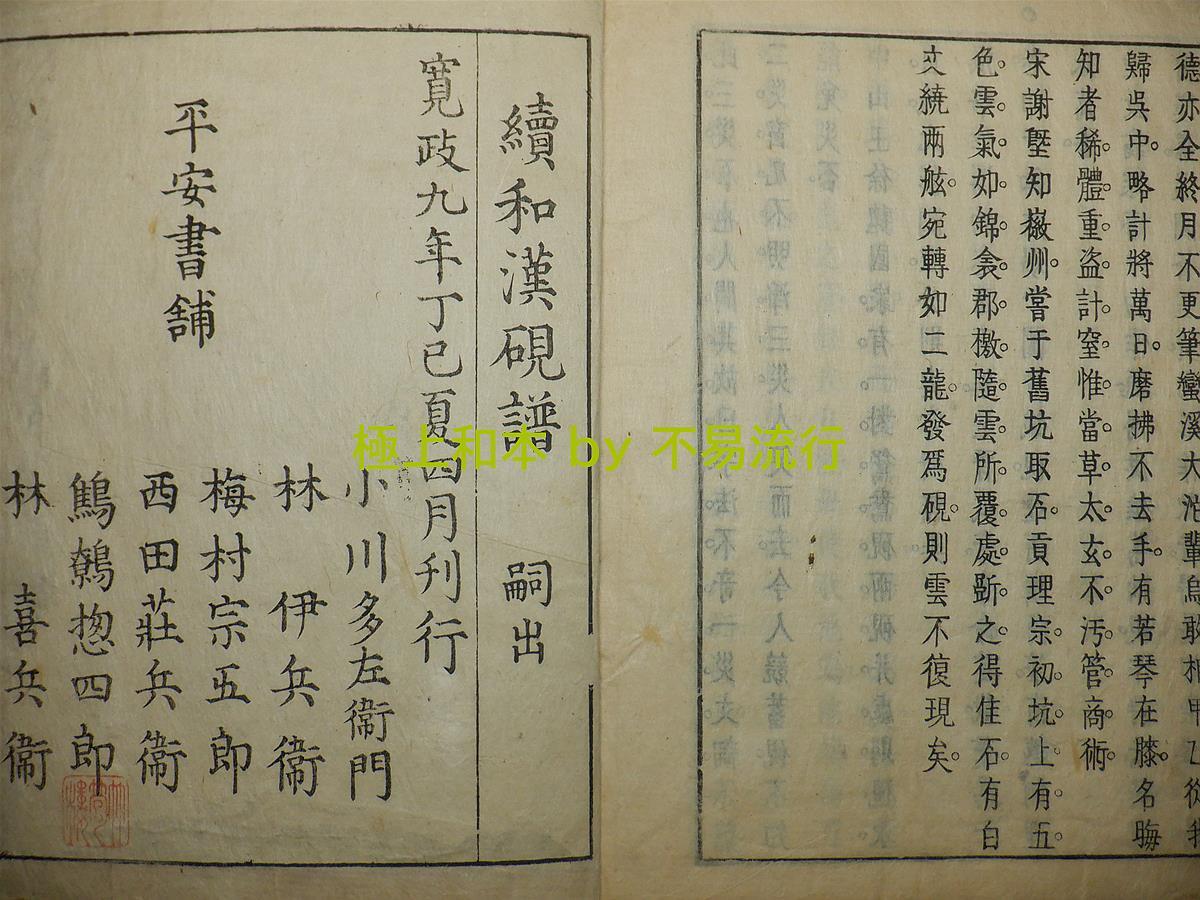 德亦全終月不更筆蠻溪大沱輩烏敢相甲乙從我
歸吳中。略計將萬日。磨拂不去手。有若琴在膝。名晦
知者稀。體重盗計窒。惟當草太玄。不汚管商術。
宋謝墍知徽州。嘗于舊坑取石。貢理宗。初坑上有五
色雲氣。如錦衾。郡檄隨雲所覆處斲之。得佳石。有白
文繞兩舷。宛轉如二龍。發爲硯。則雲不復現矣。
續和漢硯譜 嗣出
寬政九年丁巳夏四月刊行
平安書舗
小川多左衞門
林 伊兵衞
梅村宗五郎
西田莊兵衞
鷦鷯惣四郎
林 喜兵衞
極上和本 by 不易流行